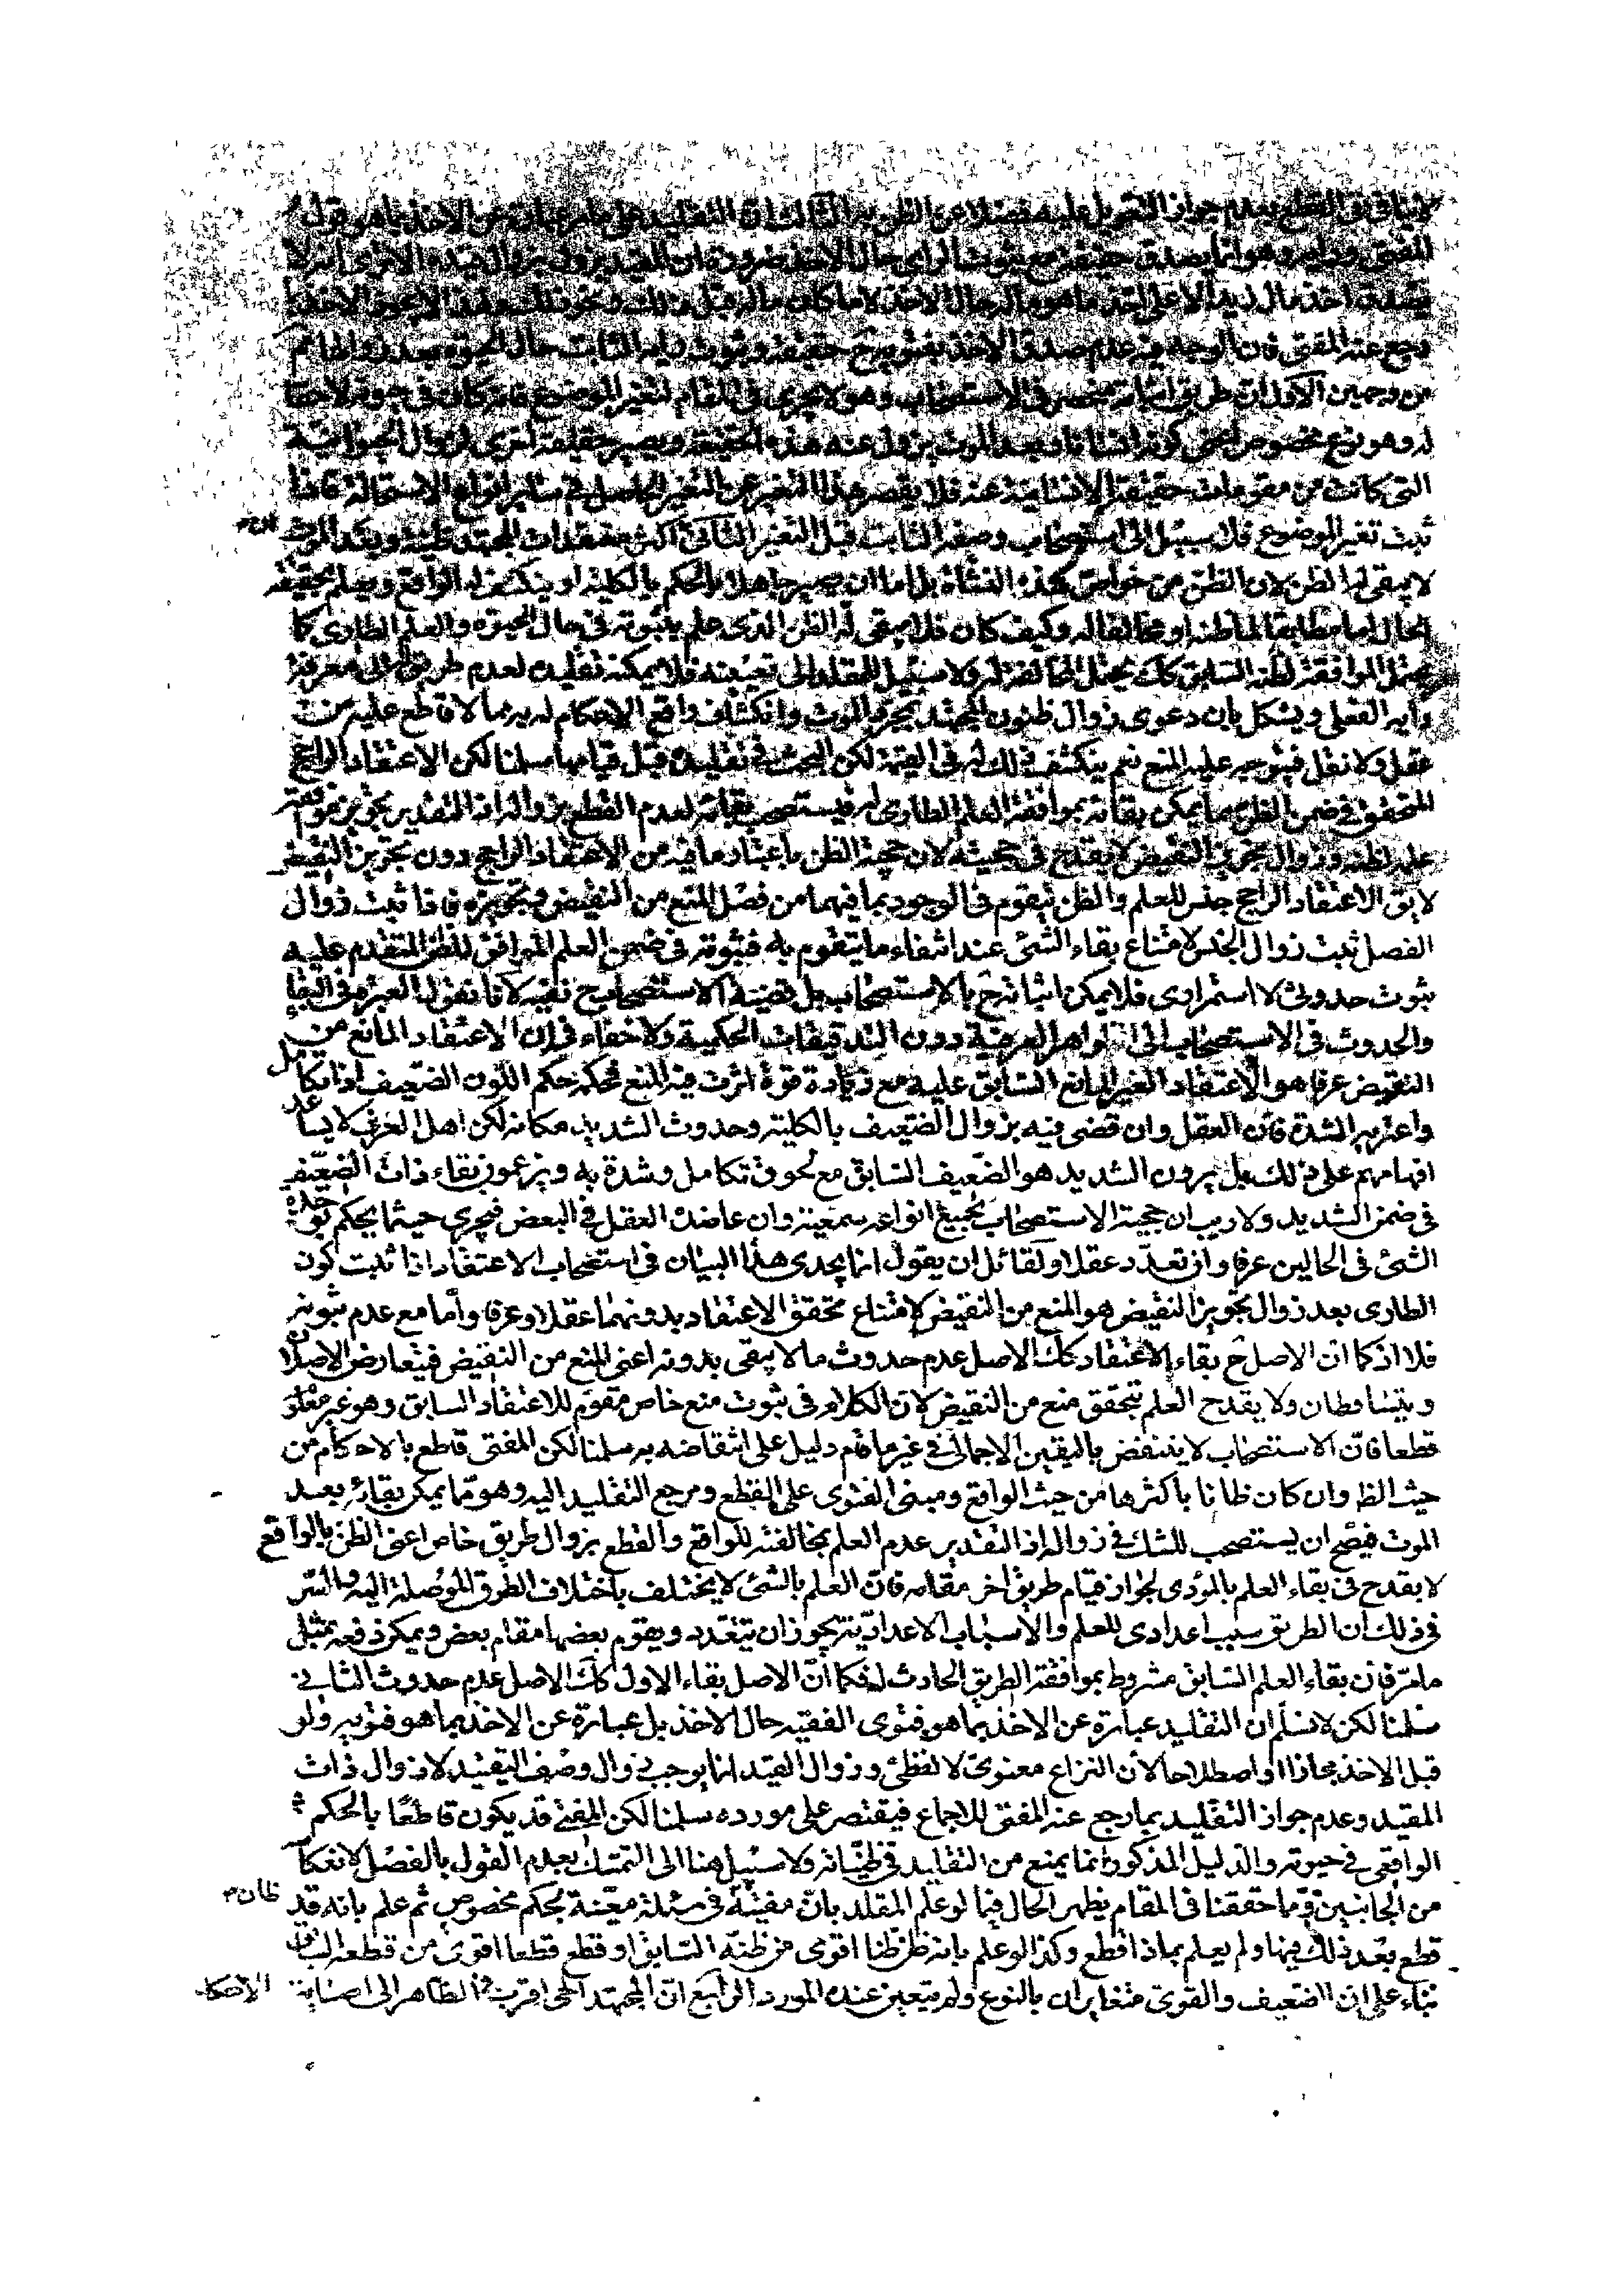 لا ينافى القطع بعدم جواز التعويل عليه فضلا عن الظن به الثالث ان التقليد على ما مر عبارة عن الاخذ بما هو قول
المفتى ورايه وهو انما يصدق حقيقة مع ثبوت الراى حال الاخذ ضرورة ان المقيد يزول بزوال قيده الا ترى انه لا
يصدق اخذ مال زيد الا على اخذ ما هو ماله حال الاخذ لا ما كان ماله قبل ذلك ونحو ذلك ولهذا لا يجوز الاخذ بما
رجع عنه المفتى فان الوجه فيه عدم صدق الاخذ بفتويه ح حقيقة وثبوت رايه الثابت حال الحيوة بعد زوالها ثم
من وجهين الاول ان طريق اثباته منحصر فى الاستصحاب وهو لا يجرى فى المقام لتغير الموضوع فانه كان فى حيوته لاحقا
له وهو نوع مخصوص اعنى كونه انسانا وبعد الموت يزول عنه هذه الحقيقة ويصير حقيقة اخرى لزوال الحيوانية
التى كانت من مقومات حقيقة الانسانية عنه فلا يقصر هذا التغير عن التغير الحاصل فى ساير انواع الاستحالة فاذا
ثبت تغير الموضوع فلا سبيل الى استصحاب وصفه الثابت قبل التغير الثانى ان اكثر معتقدات المجتهد ظنية وبعد الموت
لا يبقى له الظن لان الظن من خواص هذه النشاة بل اما ان يصير جاهلا بالحكم بالكلية او ينكشف له الواقع ويعلم بحقيقة
الحال اما مطابقا لما ظنه او مخالفا له وكيف كان فلا يبقى له الظن الذى علم بثبوته فى حال الحيوة والعلم الطارى كما
يحتمل الموافقة لظنه السابق كك يحتمل المخالفة له ولا سبيل للمقلد الى تعيينه فلا يمكنه تقليده لعدم طريق له الى معرفة
رايه الفعلى ويشكل بان دعوى زوال ظنون المجتهد بمجرد الموت وانكشاف واقع الاحكام لديه مما لا قاطع عليه من
عقل ولا نقل فيتوجه عليه المنع نعم ينكشف ذلك له فى القيمة لكن البحث فى تقليده قبل قيامها سلمنا لكن الاعتقاد الراجح
المتحقق فى ضمن الظن مما يمكن بقائه بموافقة العلم الطارى له فيستصحب بقائه لعدم القطع بزواله اذ التقدير تجويز موافقة
علمه لظنه وزوال تجويز النقيض لا يقدح فى حجيته لان حجية الظن باعتبار ما فيه من الاعتقاد الراجح دون تجويز النقيض
لا يق الاعتقاد الراجح جنس للعلم والظن يتقوم فى الوجود بما فيهما من فصل المنع من النقيض وتجويزه فاذا ثبت زوال
الفصل ثبت زوال الجنس لامتناع بقاء الشئ عند انتفاء ما يتقوم به فثبوته فى ضمن العلم الموافق للظن المتقدم عليه
ثبوت حدوثى لا استمرارى فلا يمكن اثباته ح بالاستصحاب بل قضية الاستصحاب ح نفيه لانا نقول العبرة فى البقاء
والحدوث فى الاستصحاب الى الظواهر العرفية دون التدقيقات الحكمية ولا خفاء فى ان الاعتقاد المانع من
النقيض عرفا هو الاعتقاد الغير المانع السابق عليه مع زيادة قوة اثرت فيه المنع فحكمه حكم اللون الضعيف اذا تكامل
واعتريه الشدة فان العقل وان قضى فيه بزوال الضعيف بالكلية وحدوث الشديد مكانه لكن اهل العرف لا يساعد
افهامهم على ذلك بل يرون الشديد هو الضعيف السابق مع لحوق تكامل وشدة به ويزعمون بقاء ذات الضعيف
فى ضمن الشديد ولا ريب ان حجية الاستصحاب بجميع انواعه سمعية وان عاضده العقل فى البعض فيجرى حيثما يحكم بوحدة
الشئ فى الحالين عرفا وان تعدد عقلا ولقائل ان يقول انما يجدى هذا البيان فى استصحاب الاعتقاد اذا ثبت كون
الطارى بعد زوال تجويز النقيض هو المنع من النقيض لامتناع تحقق الاعتقاد بدونهما عقلا وعرفا واما مع عدم ثبوته
فلا اذ كما ان الاصل ح بقاء الاعتقاد كك الاصل عدم حدوث ما لا يبقى بدونه اعنى المنع من النقيض فيتعارض الاصلان
ويتساقطان ولا يقدح العلم بتحقق منع من النقيض لان الكلام فى ثبوت منع خاص مقوم للاعتقاد السابق وهو غير معلوم
قطعا فان الاستصحاب لا ينتقض باليقين الاجمالى فى غير ما قام دليل على انتقاضه به سلمنا لكن المفتى قاطع بالاحكام من
حيث الظ وان كان ظانا باكثرها من حيث الواقع ومبنى الفتوى على القطع ومرجع التقليد اليه وهو مما يمكن بقائه بعد
الموت فيصح ان يستصحب للشك فى زواله اذ التقدير عدم العلم بمخالفته للواقع والقطع بزوال طريق خاص اعنى الظن بالواقع
لا يقدح فى بقاء العلم بالمؤدى لجواز قيام طريق اخر مقامه فان العلم بالشئ لا يختلف باختلاف الطرق الموصلة اليه والسر
فى ذلك ان الطريق سبب اعدادى للعلم والاسباب الاعدادية يجوز ان يتعدد ويقوم بعضها مقام بعض ويمكن دفعه بمثل
ما مر فان بقاء العلم السابق مشروط بموافقة الطريق الحادث له فكما ان الاصل بقاء الاول كك الاصل عدم حدوث الثانى
سلمنا لكن لا نسلم ان التقليد عبارة عن الاخذ بما هو فتوى الفقيه حال الاخذ بل عبارة عن الاخذ بما هو فتويه ولو
قبل الاخذ مجازا او اصطلاحا لان النزاع معنوى لا لفظى وزوال القيد انما يوجب زوال وصف التقييد لا زوال ذات
المقيد وعدم جواز التقليد بما رجع عنه المفتى للاجماع فيقتصر على مورده سلمنا لكن المفتى قد يكون قاطعا بالحكم
الواقعى فى حيوته والدليل المذكور انما يمنع من التقليد فى ظنياته ولا سبيل هنا الى التمسك بعدم القول بالفصل لانعكاسه
من الجانبين ومما حققنا فى المقام يظهر الحال فيما لو علم المقلد بان مفتيه فى مسئلة معينة بحكم مخصوص ثم علم بانه قد
ظان
قطع بعد ذلك فيها ولم يعلم بماذا قطع وكذا لو علم بانه ظن ظنا اقوى من ظنه السابق او قطع قطعا اقوى من قطعه السابق
بناء على ان الضعيف والقوى متغايران بالنوع ولم يتعين عنده المورد الرابع ان المجتهد الحى اقرب فى الظاهر الى اصابة
الاحكام